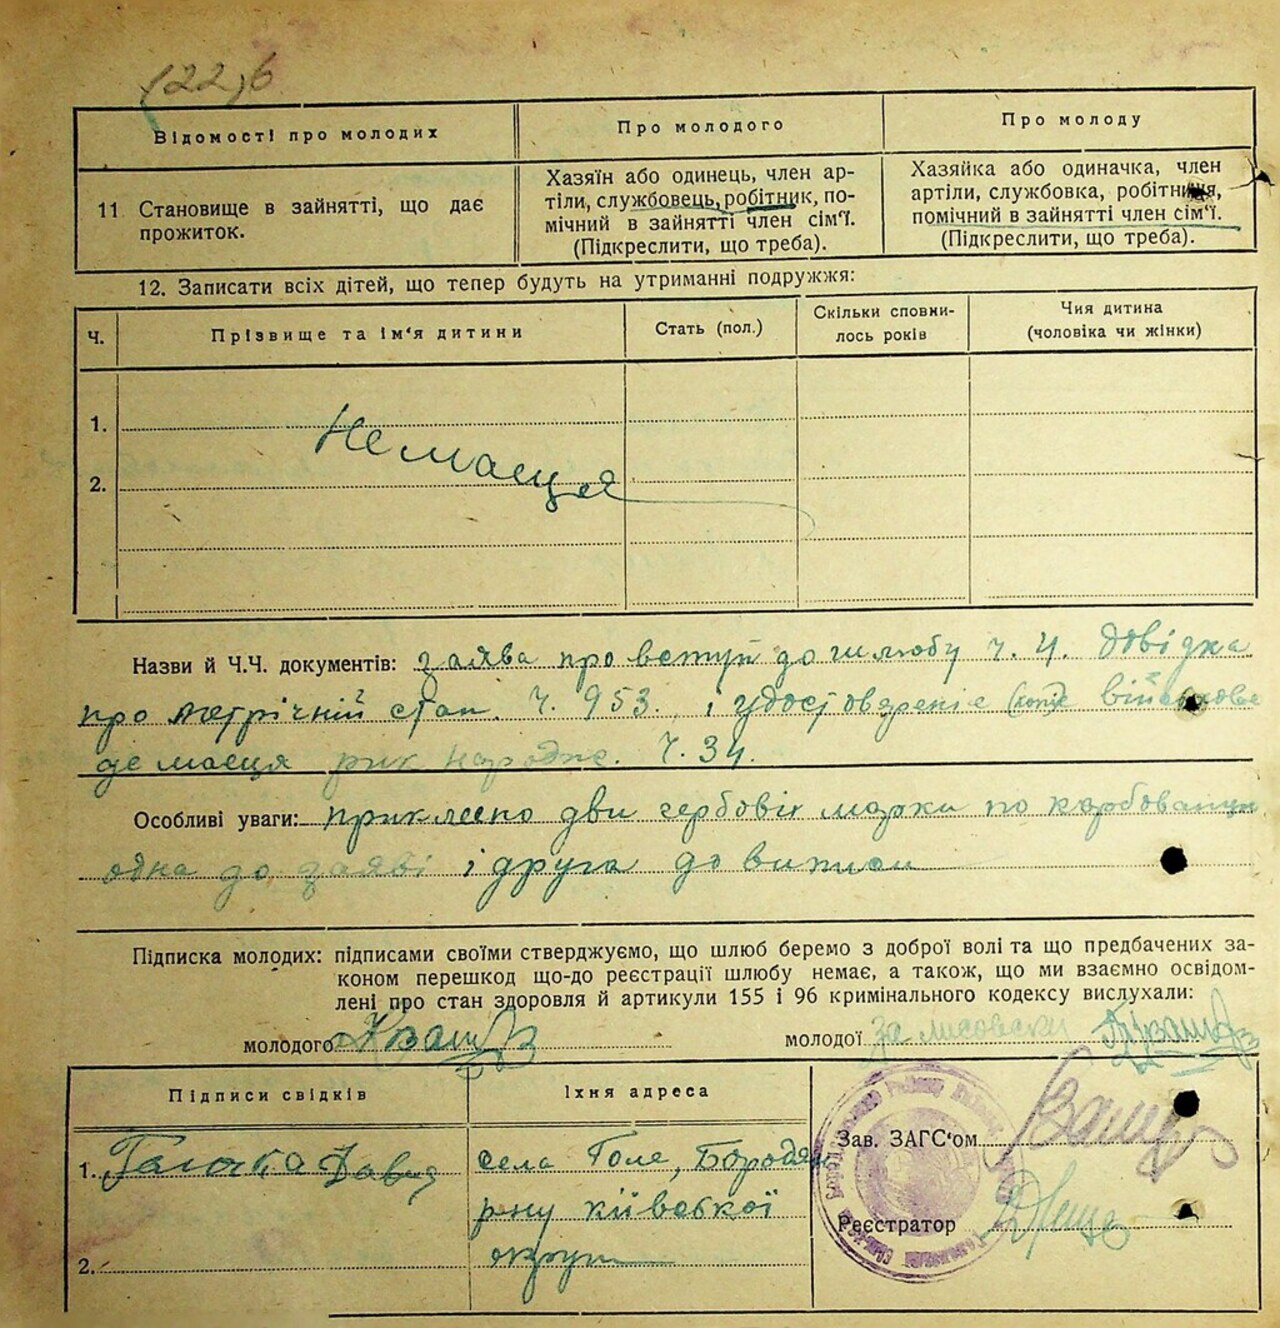 (22)б
Відомості про молодих
Про молодого
Про молоду
11. Становище в зайнятті, що дає
прожиток.
Хазяїн або одинець, член ар-
тіли, службовець, робітник, по-
мічний в зайнятті член сім'ї.
(Підкреслити, що треба).
Хазяйка або одиначка, член
артіли, службовка, робітниця,
помічний в зайнятті член сім'ї.
(Підкреслити, що треба).
12. Записати всіх дітей, що тепер будуть на утриманні подружжя:
Ч.
Прізвище та ім'я дитини
Стать (пол.)
Скільки сповни-
лось років
Чия дитина
(чоловіка чи жінки)
1.
Немаеця
2.
Назви й Ч.Ч. документів: заява про вступ до шлюбу Ч. 4. Довідка
про метрічний стан. Ч. 953. і удостовереніе (копіє військове
де маеця рик народж. Ч. 34.
Особливі уваги: приклеено дви гербовіх марки по карбованцю
одна до заяві і друга до виписи
Підписка молодих: підписами своїми стверджуємо, що шлюб беремо з доброї волі та що предбачених за-
коном перешкод що-до реєстрації шлюбу немає, а також, що ми взаємно освідом-
лені про стан здоровля й артикули 155 і 96 кримінального кодексу вислухали:
молодого
молодої
Підписи свідків
Їхня адреса
1.
села Голе, Бородян
рену київської
округи
2.
Зав. ЗАГС'ом
Реєстратор